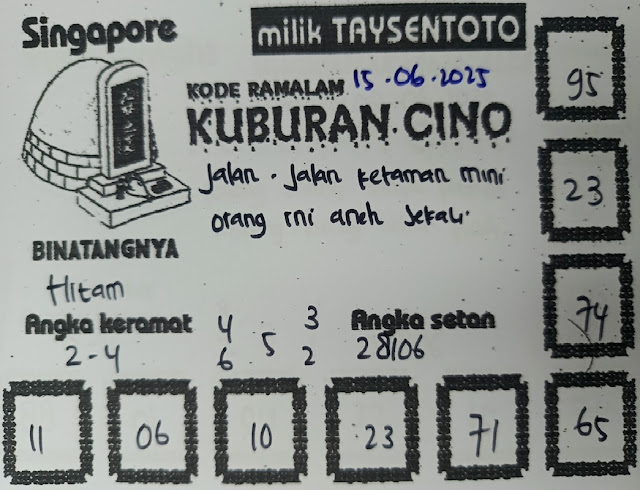 Singapore
milik TAYSENTOTO
KODE RAMALAM 15.06.2025
KUBURAN.CINO
Jalan. Jalan ketaman mini
orang ini aneh sekali.
BINATANGNYA
Hitam
Angka keramat
2-4
4 3
5
6 2
Angka setan
28106
95
23
74
65
11
06
10
23
71